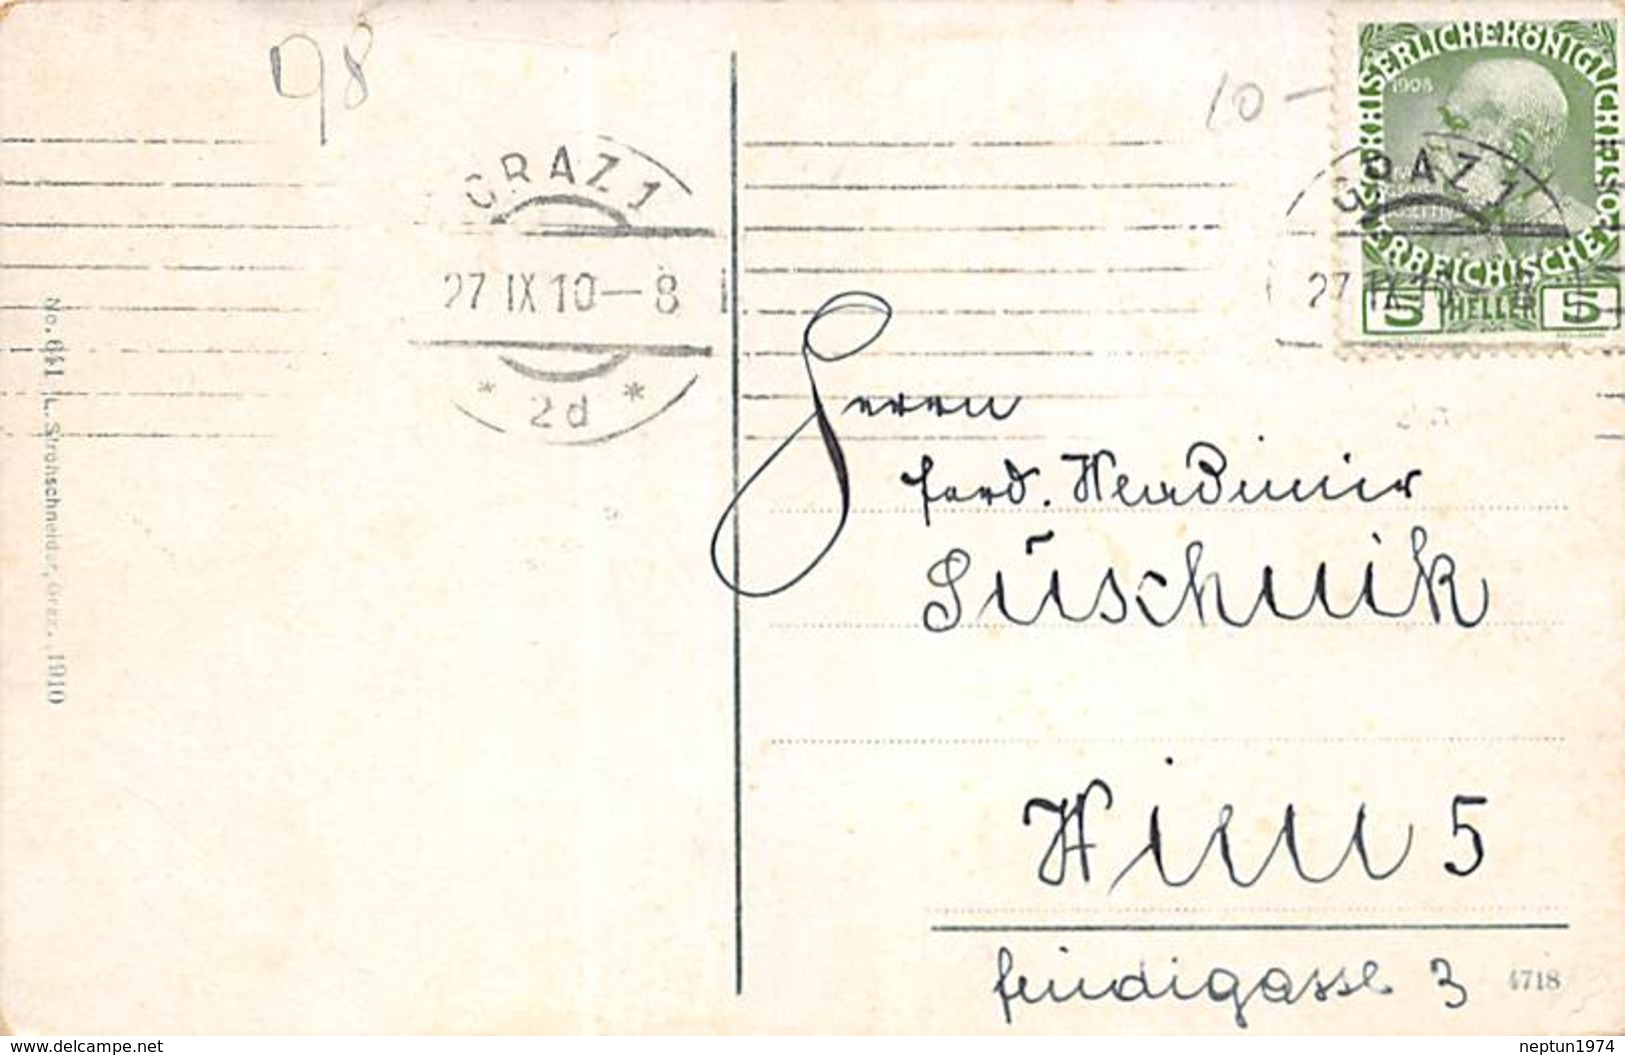 98
10 —
1908
KAISERLICHEKÖNIGLICHE
ÖSTERREICHISCHE POST
5 HELLER 5
GRAZ 1
27 IX 10 — 8
* 2d *
GRAZ 1
27 IX 10 — 8
No. 641 L. Strohschneider, Graz. 1910
Herrn
Ferd.
Süschnik
Wien 5
Hundigasse 3
4718
www.delcampe.net
neptun1974